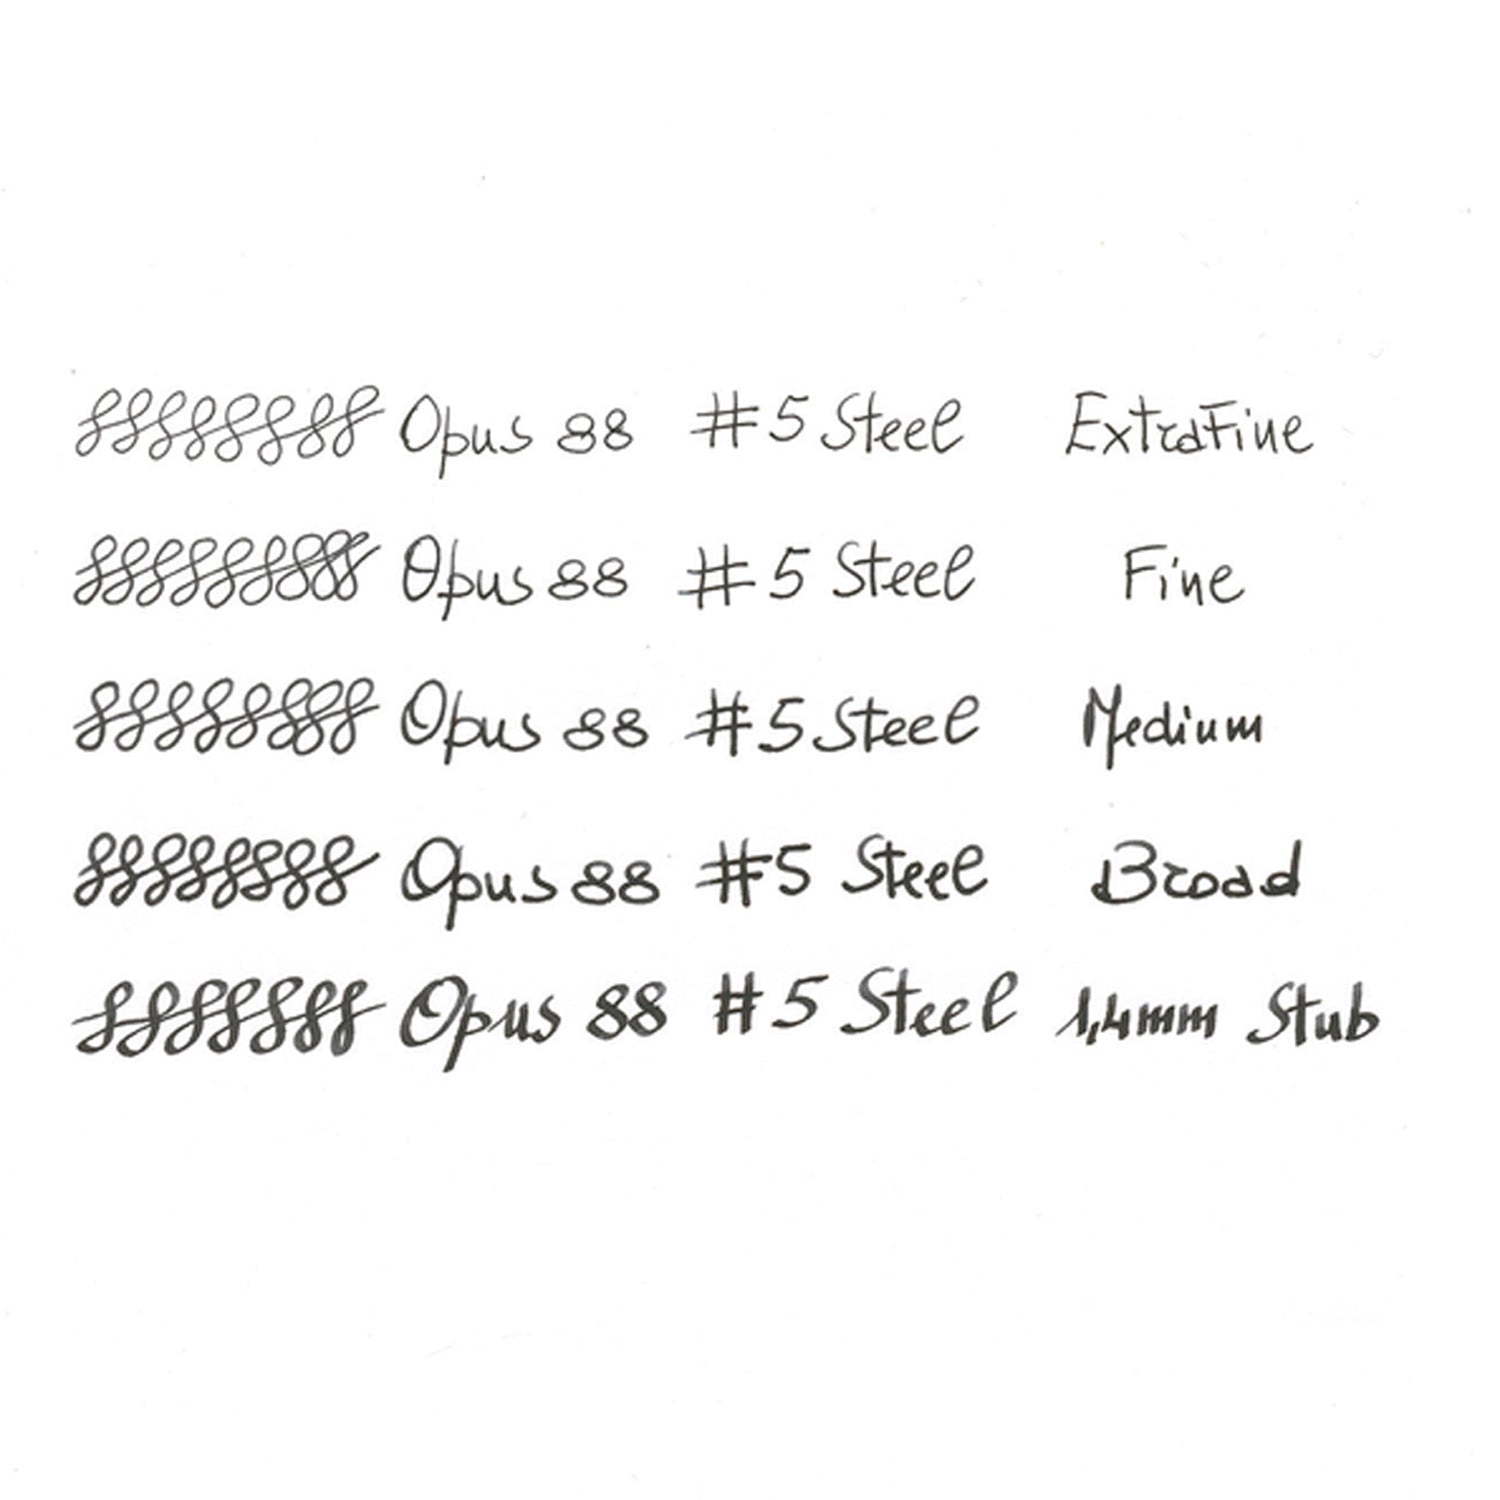 Opus 88 #5 Steel ExtraFine
Opus 88 #5 Steel Fine
Opus 88 #5 Steel Medium
Opus 88 #5 Steel Broad
Opus 88 #5 Steel 1,4mm Stub